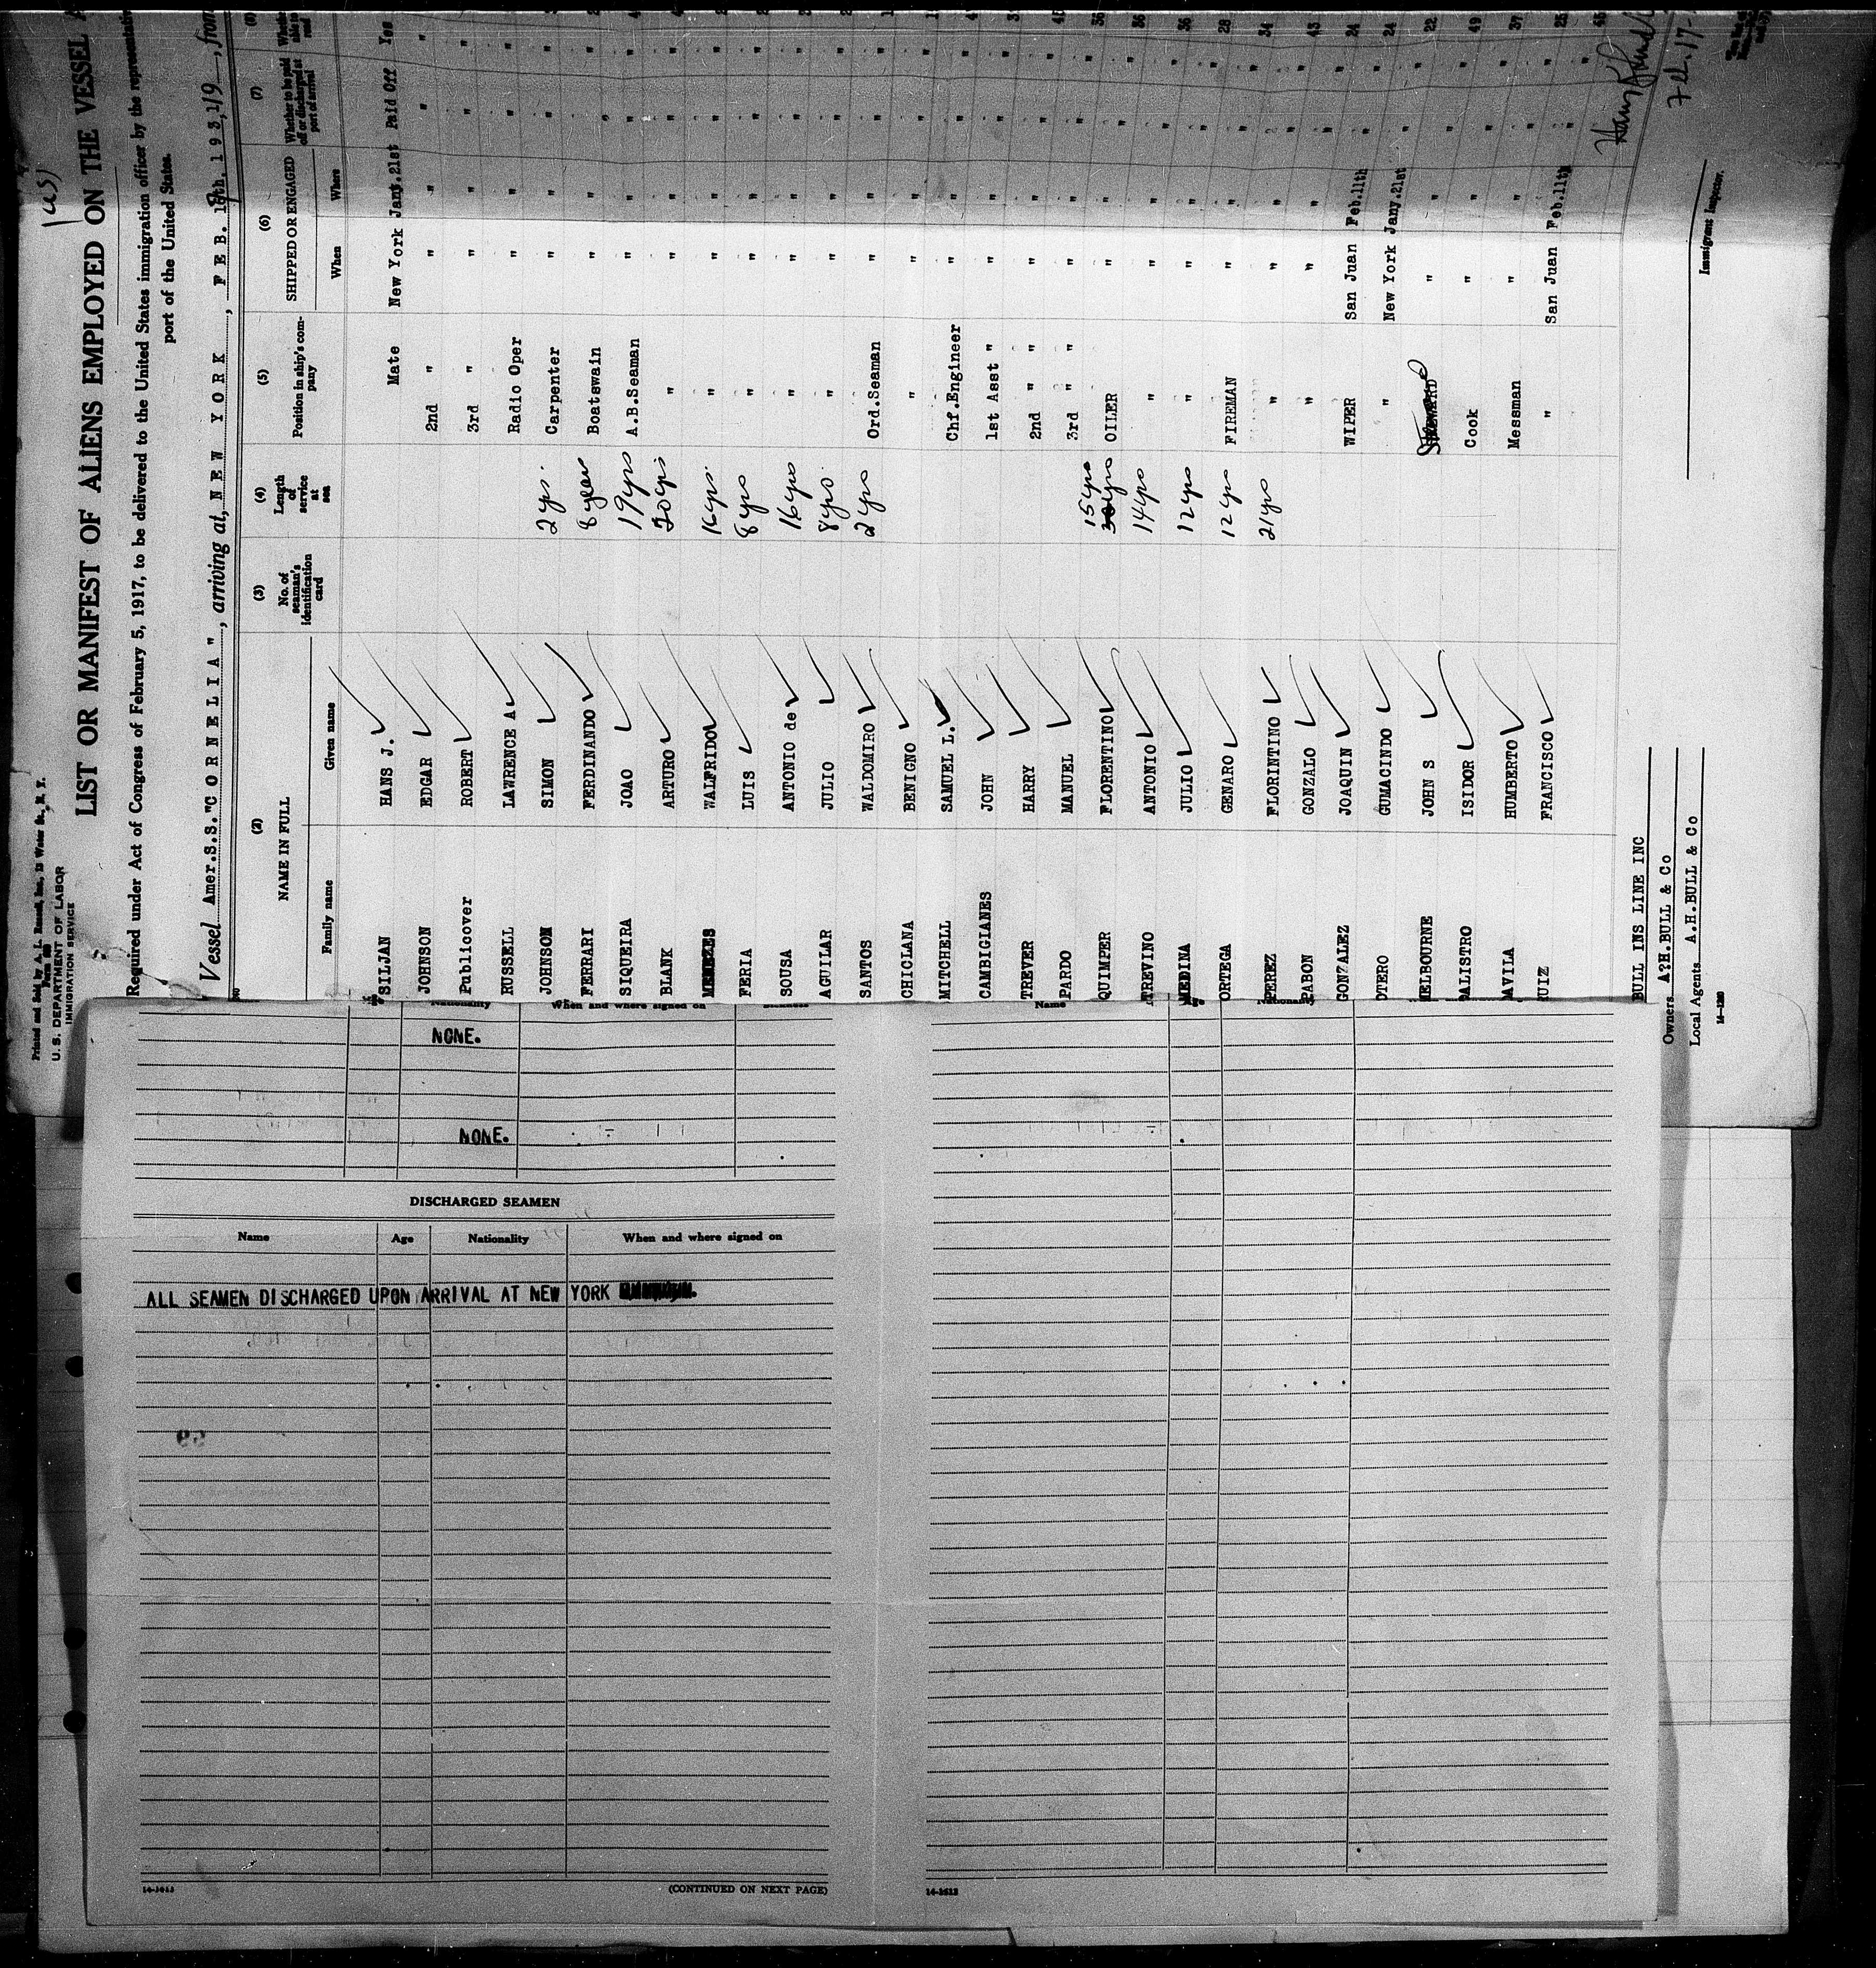 Printed and Sold by A. L. Russell, Inc., 15 Water St., N. Y.
Form 689
U. S. DEPARTMENT OF LABOR
IMMIGRATION SERVICE
LIST OR MANIFEST OF ALIENS EMPLOYED ON THE VESSEL
Required under Act of Congress of February 5, 1917, to be delivered to the United States immigration officer by the representativ
port of the United States.
Vessel Amer.S.S."CORNELIA", arriving at, NEW YORK, FEB. 193, from
(2) (3) (4) (5) (6) (7) (8)
NAME IN FULL No. of seaman's identification card Length of service at sea Position in ship's company SHIPPED OR ENGAGED Whether to be paid off or discharged at port of arrival Whether able to read
Family name Given name When Where
SILJAN HANS J. Mate New York Jany.21st Paid Off Yes
JOHNSON EDGAR 2nd " " " " "
Publicover ROBERT 3rd " " " " "
RUSSELL LAWRENCE A Radio Oper " " " "
JOHNSON SIMON 2 yrs. Carpenter " " " "
FERRARI FERDINANDO 8 years Boatswain " " " "
SIQUEIRA JOAO 19 yrs A.B.Seaman " " " "
BLANK ARTURO 30 yrs " " " " "
MENEZES WALFRIDO 16 yrs. " " " " "
FERIA LUIS 8 yrs " " " " "
SOUSA ANTONIO de 16 yrs " " " " "
AGUILAR JULIO 8 yrs. " " " " "
SANTOS WALDOMIRO 2 yrs Ord.Seaman " " " "
CHICLANA BENIGNO " " " " "
MITCHELL SAMUEL L. Chf.Engineer " " " "
CAMBIGIANES JOHN 1st Asst " " " " "
TREVER HARRY 2nd " " " " " "
PARDO MANUEL 3rd " " " " " "
QUIMPER FLORENTINO 15 yrs OILER " " " " 36
TREVINO ANTONIO 14 yrs " " " " " 36
MEDINA JULIO 12 yrs " " " " " 36
ORTEGA GENARO 12 yrs FIREMAN " " " " 28
PEREZ FLORINTINO 21 yrs " " " " " 34
PABON GONZALO " " " " " 43
GONZALEZ JOAQUIN WIPER San Juan Feb.11th " " 24
OTERO GUMACINDO " New York Jany.21st " " 24
MELBOURNE JOHN S " " " " 22
ALISTRO ISIDOR Cook " " " " 49
AVILA HUMBERTO Messman " " " " 37
RUIZ FRANCISCO " San Juan Feb.11th " " 25
BULL INS LINE INC
Owners A?H.BULL & Co
Local Agents A.H.BULL & Co
Immigrant Inspector.
Nationality When and where signed on
NONE.
NONE.
DISCHARGED SEAMEN
Name Age Nationality When and where signed on
ALL SEAMEN DISCHARGED UPON ARRIVAL AT NEW YORK
(CONTINUED ON NEXT PAGE)
Name